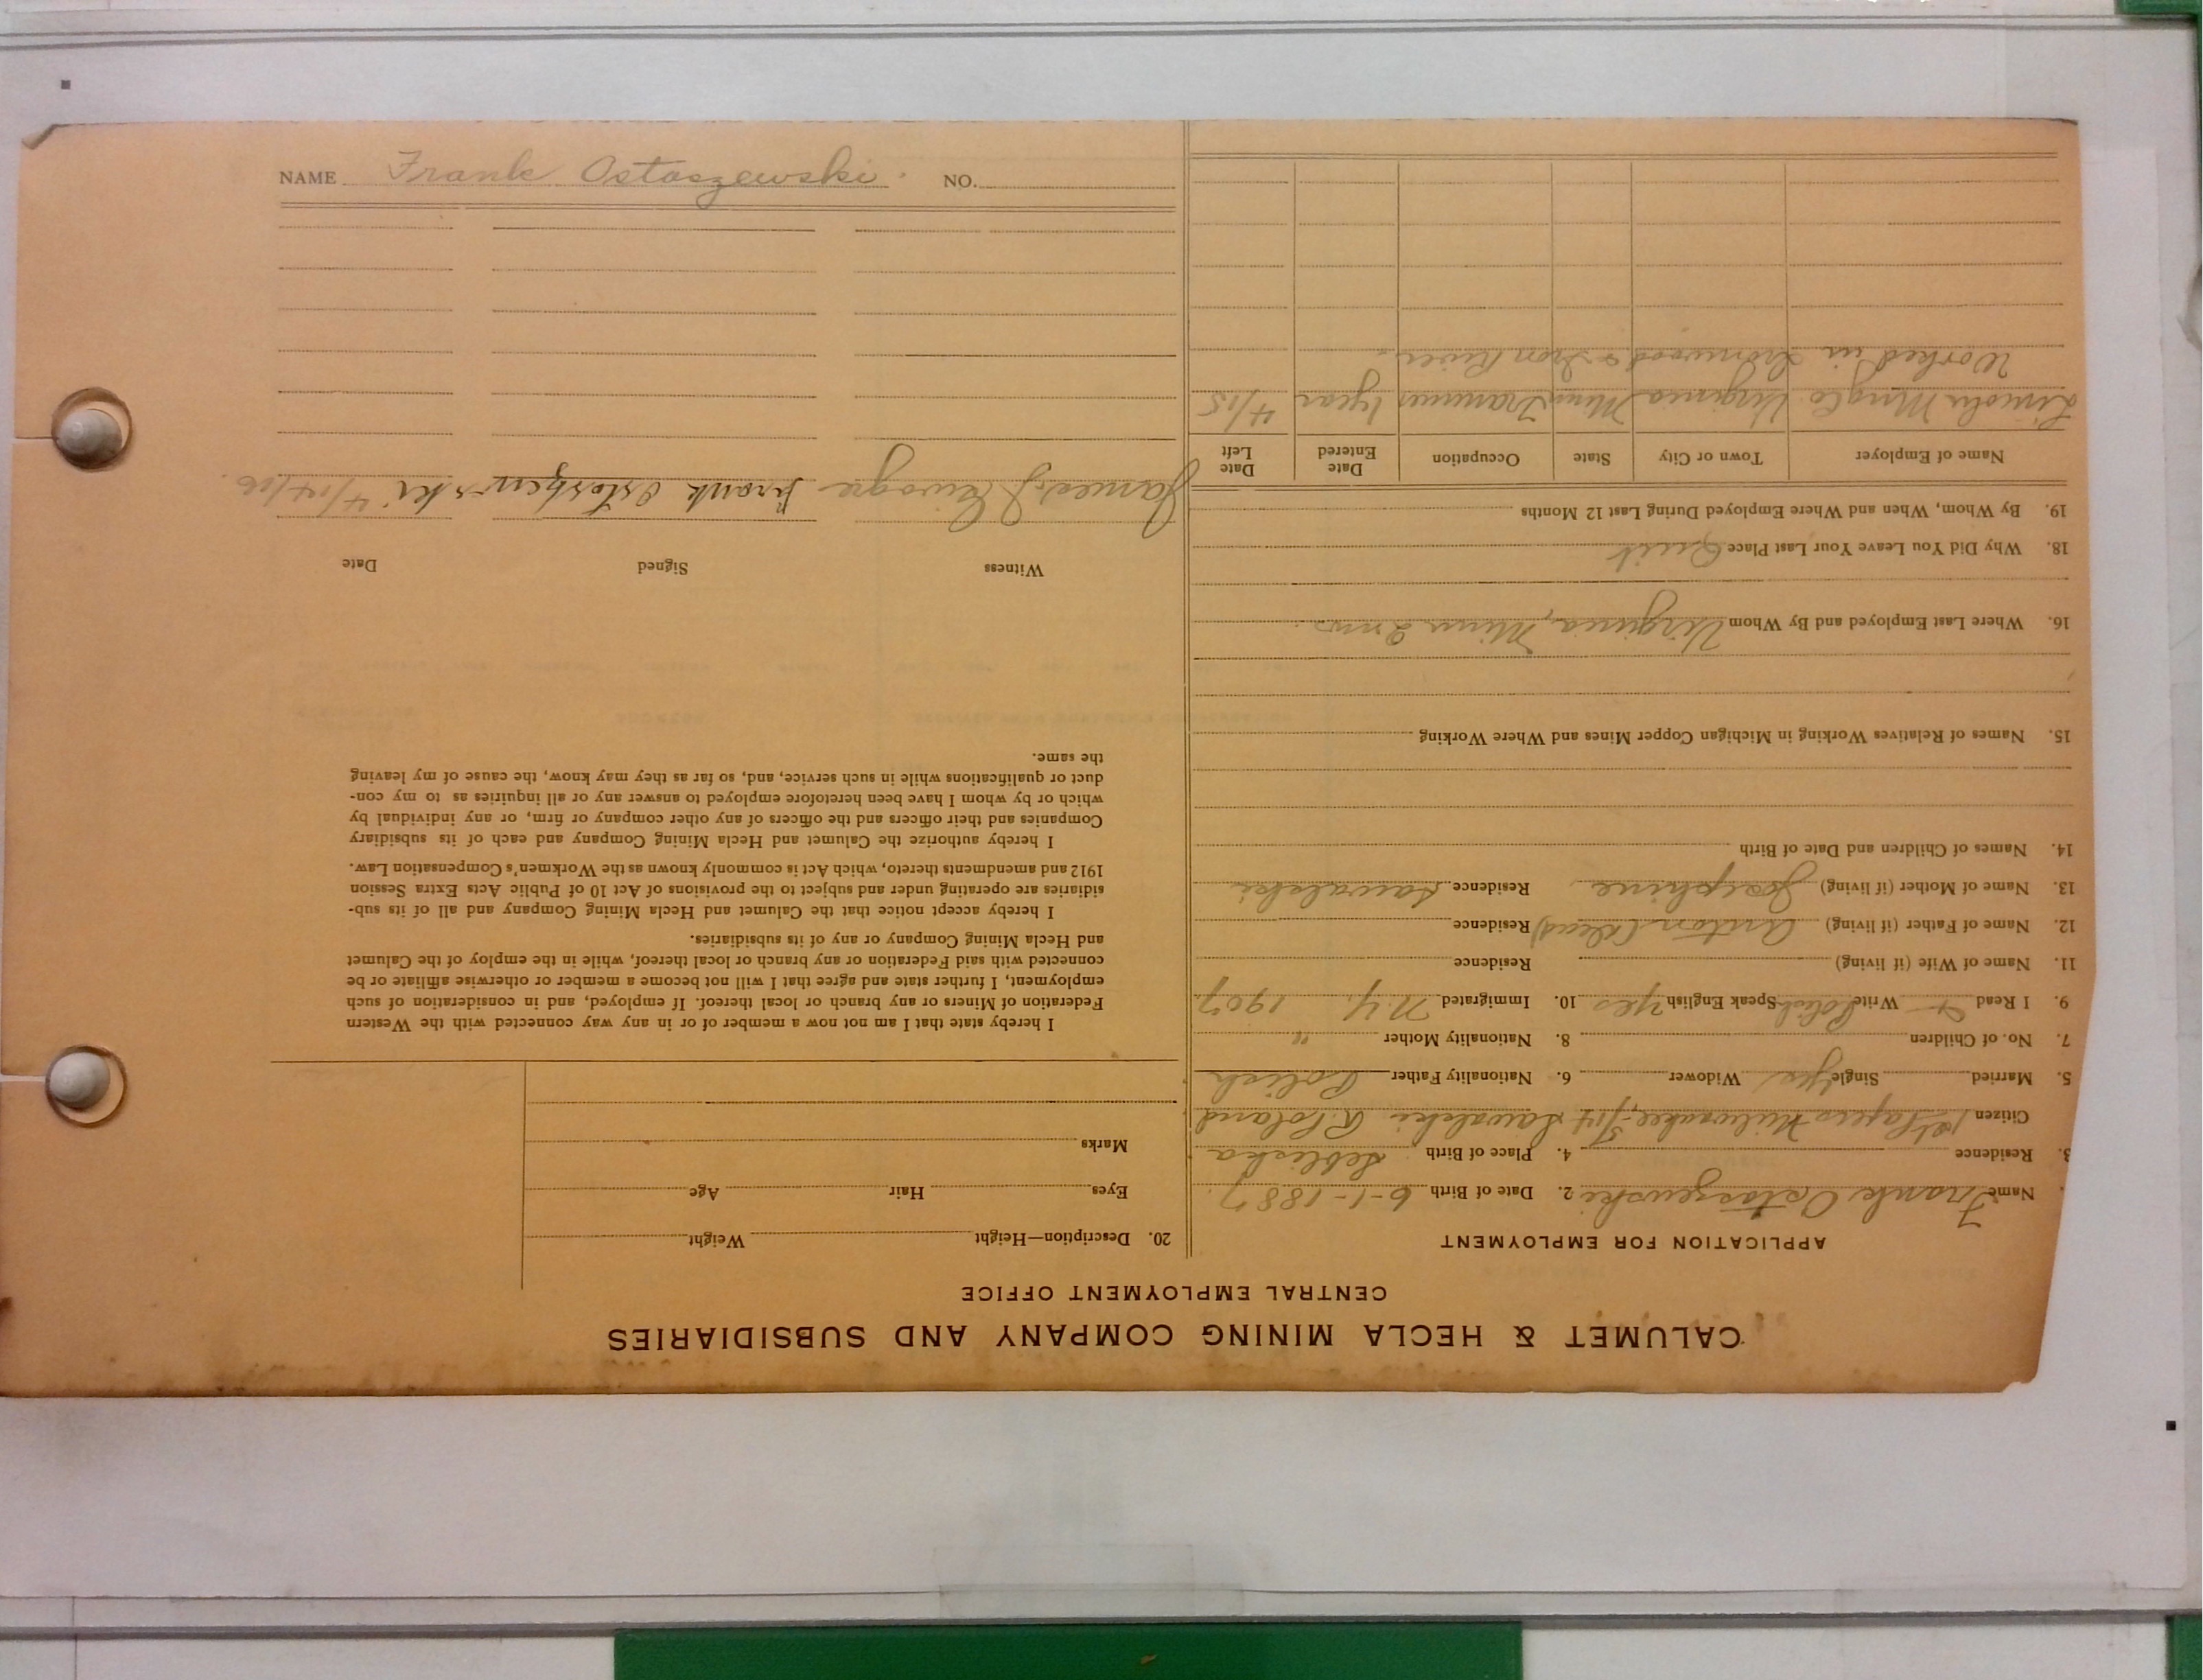 CALUMET & HECLA MINING COMPANY AND SUBSIDIARIES
CENTRAL EMPLOYMENT OFFICE
APPLICATION FOR EMPLOYMENT
Name Frank Ostaszewski 2. Date of Birth 6-1-1887
3. Residence 4. Place of Birth
Citizen 1st Papers Milwaukee Poland
5. Married Single yes Widower 6. Nationality Father Polish
7. No. of Children 8. Nationality Mother "
9. I Read Write Polish Speak English yes 10. Immigrated N.Y. 1907
11. Name of Wife (if living) Residence
12. Name of Father (if living) Anton (dead) Residence
13. Name of Mother (if living) Josephine Residence Suwalski
14. Names of Children and Date of Birth
15. Names of Relatives Working in Michigan Copper Mines and Where Working
16. Where Last Employed and By Whom Virginia, Minn
18. Why Did You Leave Your Last Place Quit
19. By Whom, When and Where Employed During Last 12 Months
Name of Employer Town or City State Occupation Date Entered Date Left
Lincoln Mng Co Virginia Minn Trammer 1 year 4/15
Worked in Ironwood & Iron River
20. Description—Height Weight
Eyes Hair Age
Marks
I hereby state that I am not now a member of or in any way connected with the Western
Federation of Miners or any branch or local thereof. If employed, and in consideration of such
employment, I further state and agree that I will not become a member or otherwise affiliate or be
connected with said Federation or any branch or local thereof, while in the employ of the Calumet
and Hecla Mining Company or any of its subsidiaries.
I hereby accept notice that the Calumet and Hecla Mining Company and all of its sub-
sidiaries are operating under and subject to the provisions of Act 10 of Public Acts Extra Session
1912 and amendments thereto, which Act is commonly known as the Workmen's Compensation Law.
I hereby authorize the Calumet and Hecla Mining Company and each of its subsidiary
Companies and their officers and the officers of any other company or firm, or any individual by
which or by whom I have been heretofore employed to answer any or all inquiries as to my con-
duct or qualifications while in such service, and, so far as they may know, the cause of my leaving
the same.
Witness Signed Date
James Frank Ostaszewski
NAME Frank Ostaszewski NO.